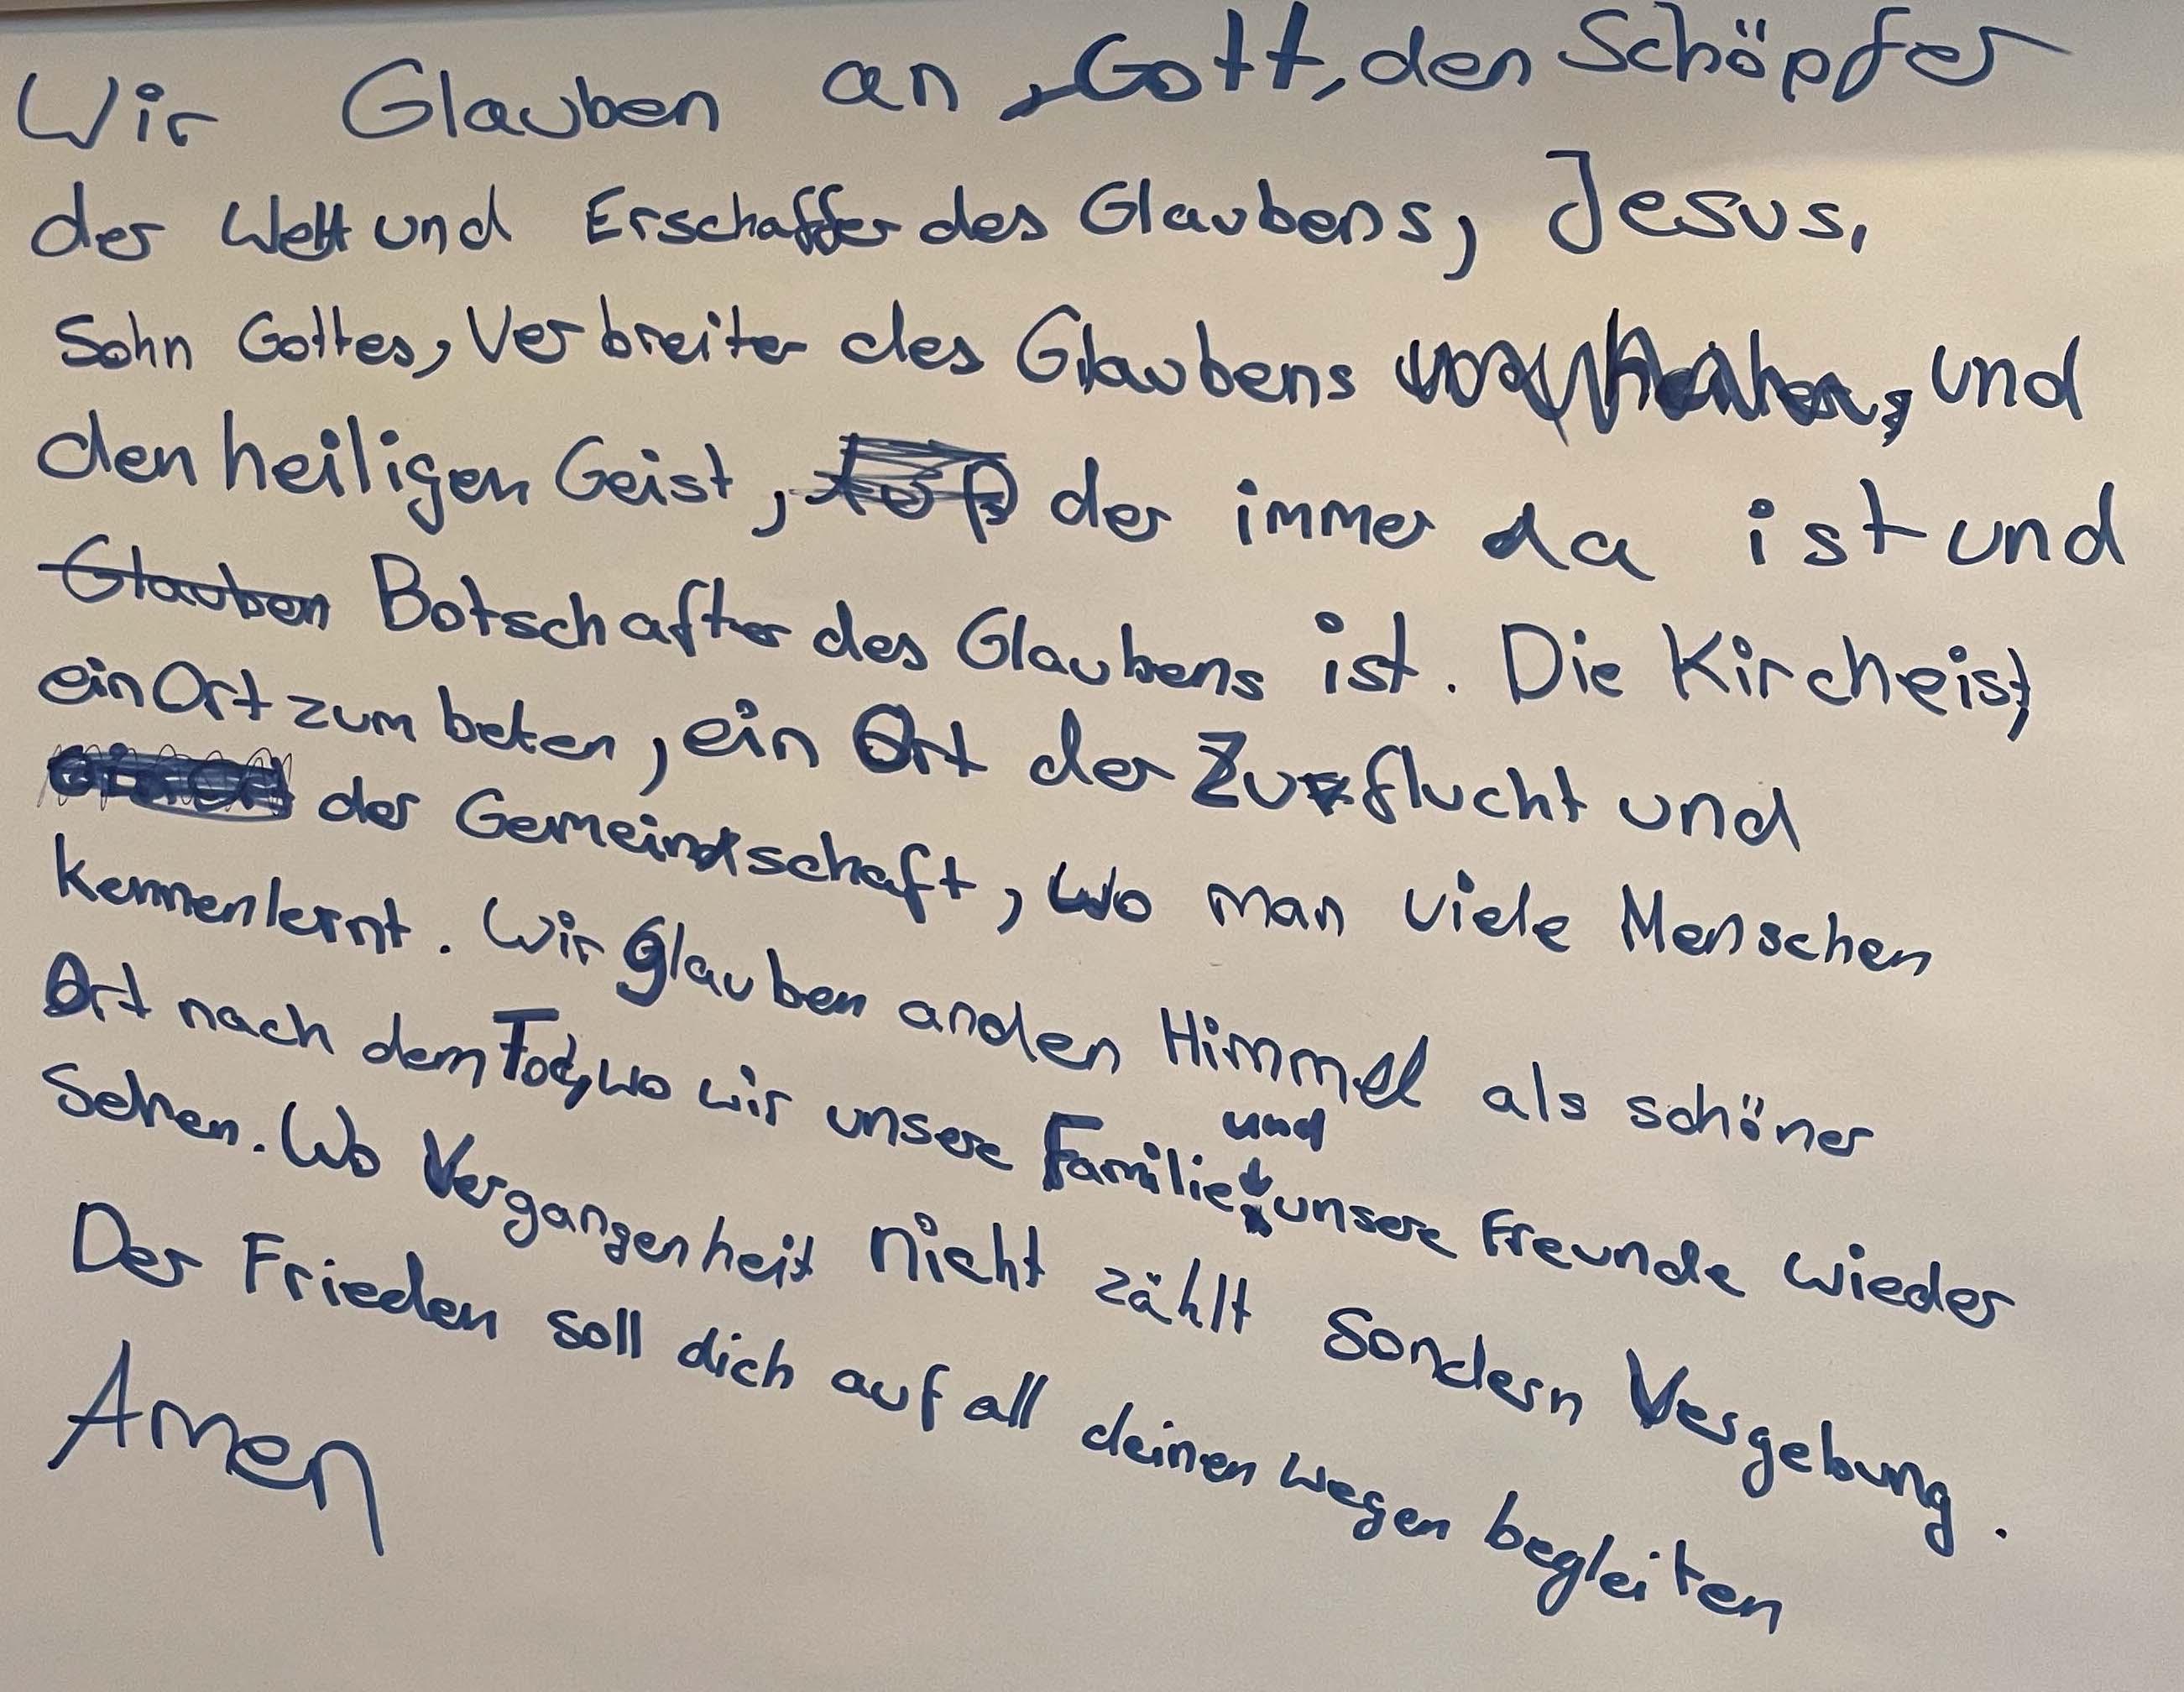 Wir Glauben an Gott, den Schöpfer
der Welt und Erschaffer des Glaubens, Jesus,
Sohn Gottes, Verbreiter des Glaubens und
den heiligen Geist, der immer da ist und
Glauben Botschafter des Glaubens ist. Die Kirche ist,
ein Ort zum beten, ein Ort der Zuflucht und
der Gemeinschaft, wo man viele Menschen
kennenlernt. Wir glauben an den Himmel als schöner
Ort nach dem Tod, wo wir unsere Familie und unsere Freunde wieder
Sehen. Wo Vergangenheit nicht zählt sondern Vergebung.
Der Frieden soll dich auf all deinen wegen begleiten
Amen